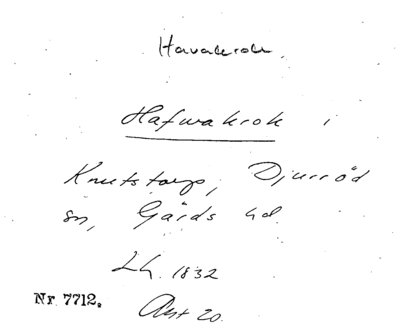 Havakrok.
Hafwakrok i
Knutstorp, Djurröd
sn, Gärds hd.
Lh. 1832
Nr 7712.
Akt 20.